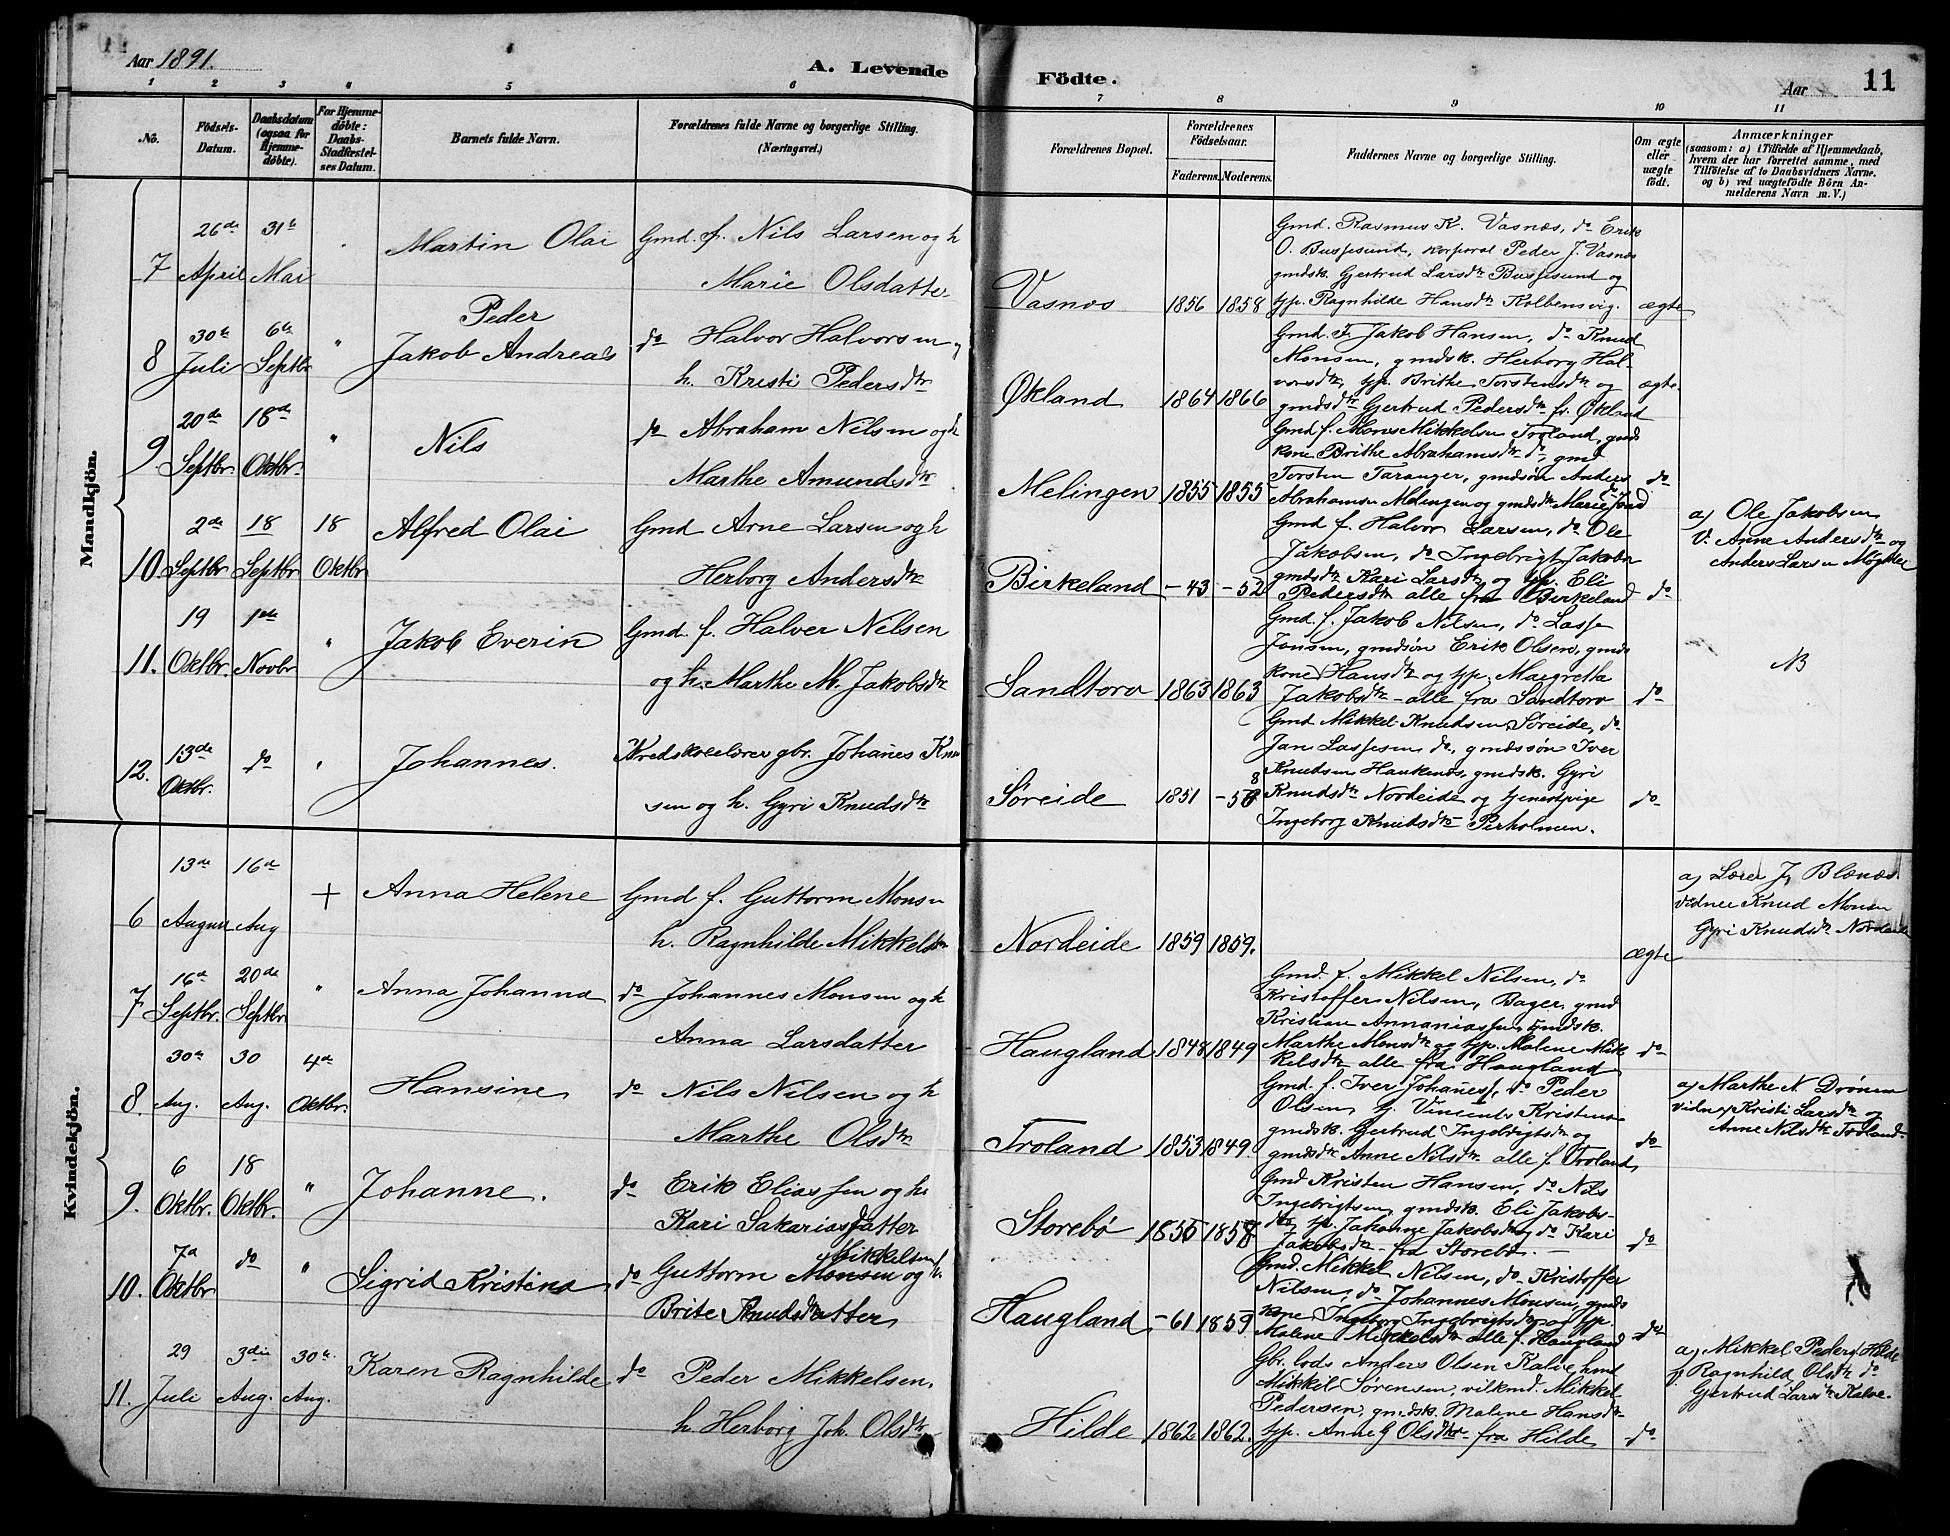 Aar 1891.
A. Levende Födte.
Aar 11
1 2 3 4 5 6 7 8 9 10 11
No.
Födsels-Datum.
Daabsdatum (ogsaa for Hjemme-döbte).
For Hjemme-döbte: Daabs-Stadfæstel-ses Datum.
Barnets fulde Navn.
Forældrenes fulde Navne og borgerlige Stilling. (Næringsvei.)
Forældrenes Bopæl.
Forældrenes Födselsaar.
Faderens. Moderens.
Faddernes Navne og borgerlige Stilling.
Om ægte eller uægte födt.
Anmærkninger
(saasom: a) i Tilfælde af Hjemmedaab, hvem der har forrettet samme, med Tilföielse af to Daabsvidners Navne, og b) ved uægtefödte Börn An-melderens Navn m. V.)
Mandkjön.
7 26de April 31te Mai Martin Olai
Gmd. f. Nils Larsen og h
Marie Olsdatter
Vasnæs 1856 1858
Gmd. Rasmus K. Vasnæs, do Erik
O. Bussesund, korporal Peder J. Vasnæs
gmdsk. Gjertrud Larsdtr Bussesund og
tjp. Ragnhilde Hansdtr Kolbensvig. ægte
8 30te Juli 6te Septbr " Peder
Jakob Andreas
do Halvor Halvorsen og
h. Kristi Pedersdtr
Økland 1864 1866
Gmd. F. Jakob Hansen, do Knud
Monsen, gmdsk. Herborg Hal-
vorsdtr, tjp. Brithe Torstensdtr og ægte
gmdsdtr Gjertrud Pedersdtr fr. Økland
9 20de Septbr. 18de Oktbr. " Nils
do Abraham Nilsen og h
Marthe Amundsdtr
Melingen 1855 1855
Gmd f. Mons Mikkelsen Troland, gmds
kone Brithe Abrahamsdtr do, gmd
Torsten Taranger, gmdsøn Anders do
Abrahamsen Melingen og gmdsdtr Marie
10 2de Septbr 18 Septbr 18 Oktbr Alfred Olai
Gmd Arne Larsen og h
Herborg Andersdtr
Birkeland -43 -52
Gmd f. Halvor Larsen, do Ole
Jakobsen, do Ingebrigt Jakobsen
gmdsdtr Kari Larsdtr og tjp. Eli
Pedersdtr alle fra Birkeland do
a) Ole Jakobsen
V. Anne Andersdtr og
Anders Larsen
11. 19 Oktbr. 1ste Novbr " Jakob Everin
Gmd. f. Halver Nilsen
og h. Marthe M. Jakobsdtr
Sandtorv 1863 1863
Gmd. f. Jakob Nilsen, do Lasse
Jonsen, gmdsøn Erik Olsen, gmds
kone Hansdtr og tjp. Margretha
Jakobsdtr - alle fra Sandtorv do
NB
12. 13de Oktbr. do " Johannes.
Kredsskolelærer gbr. Johanes Knud
sen og h. Gyri Knudsdtr
Søreide 1851 -58
Gmd Mikkel Knudsen Søreide, do
Jan Lassesen do, gmdssøn Iver
Knudsen Haukenæs, gmdsk. Gyri
Knudsdtr Nordeide og tjenestpige do
Ingeborg Knudsdtr Perholmen.
Kvindekjön.
6 13de August 16de Aug + Anna Helene
Gmd f. Guttorm Monsen
h. Ragnhilde Mikkelsdtr
Nordeide 1859 1859.
ægte
a) Lærer J. Blænæs
vidner Knud Monsen
Gyri Knudsdtr Nordeide
7 16de Septbr. 20de Septbr " Anna Johanna
do Johannes Monsen og h
Anna Larsdatter
Haugland 1848 1849
Gmd. f. Mikkel Nilsen, do
Kristoffer Nilsen, Bager, gmd
Kristian Annaniassen, gmdsk.
Marthe Monsdtr og tjp. Malene Mik do
kelsdtr alle fra Haugland
8 30te Aug. 30 Aug. 4de Oktbr. Hansine
do Nils Nilsen og h
Marthe Olsdtr
Troland 1853 1849.
Gmd. f. Iver Johanes, do Peder
Olsen, Vincents Kristensen
gmdsk. Gjertrud Ingebrigtsdtr og
gmdsdtr Anne Nilsdtr alle f. Troland do
a) Marthe N. Drönen
vidner Kristi Larsdtr og
Anne Nilsdtr Troland.
9. 6 Oktbr. 18 Oktbr. " Johanne.
do Erik Eliassen og h.
Kari Sakariasdatter
Storebø 1855 1858
Gmd Kristen Hansen, do Nils
Ingebrigtsen, gmdsk. Eli Jakobs-
dtr, tp. Johanne Jakobsdtr, do Kari
Jakobsdtr - fra Storebø. - do
10. 7de Oktbr do " Sigrid Kristina
do Guttorm Monsen Mikkelsen og h.
Brite Knudsdatter
Haugland -61 1859
Gmd. Mikkel Nilsen, do Kristoffer
Nilsen, do Johannes Monsen, gmds
kone Ingeborg Ingebrigtsdtr og tjp.
Malene Mikkelsdtr alle f. Haugland do
11. 29 Juli 3die Aug. 30te Aug. Karen Ragnhilde
do Peder Mikkelsen.
h. Herborg Joh. Olsdtr
Hilde 1862 1862.
Gbr. lods Anders Olsen Kalve, hmd
Mikkel Sörensen, vilkmd. Mikkel
Pedersen, gmdsk. Malene Hansdtr
tjp. Anne G Olsdtr fra Hilde do
a) Mikkel Peders. Hilde
Ragnhild Olsdtr do
Gjertrud Larsdtr Kalve.